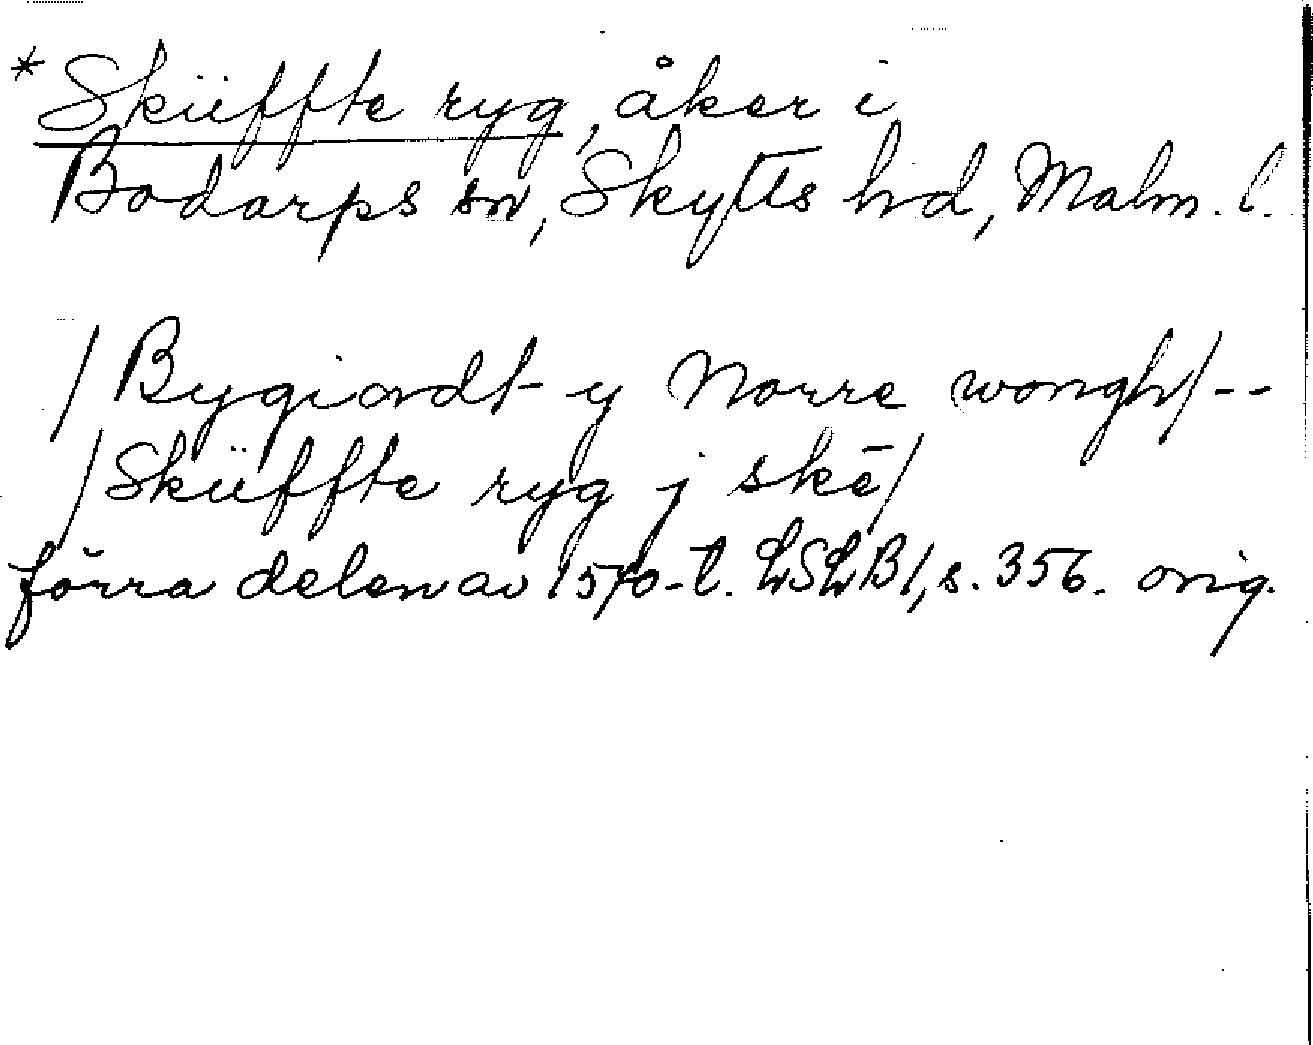 *Sküffte ryg, åker i
Bodarps sn, Skytts hd, Malm. l.
/Bygiordt y Norre wongh/--
/Sküffte ryg j skē/
förra delen av 1570-t. LSLB1, s. 356. orig.